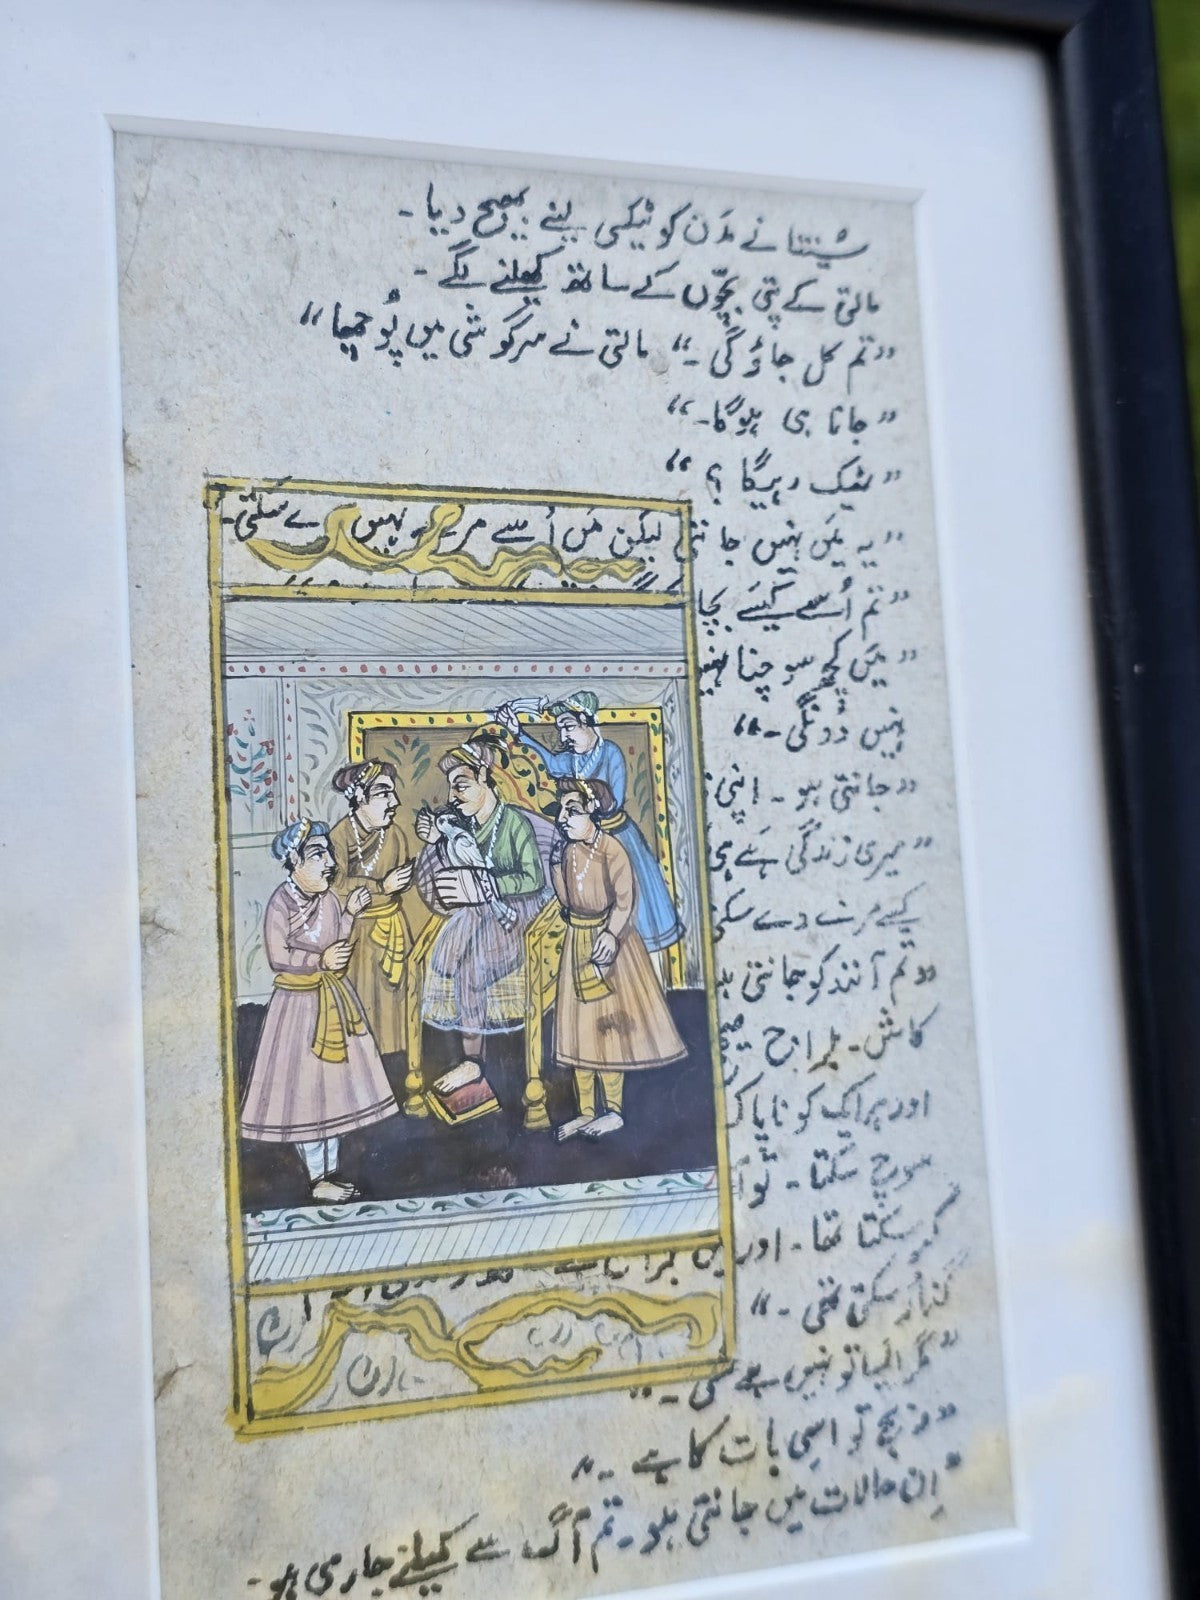 شیتنا نے مدن کو ٹیکسی لینے بھیج دیا۔
مالتی کے پتی بچّوں کے ساتھ کھیلنے لگے۔
”تم کل جاؤ گی۔“ مالتی نے سرگوشی میں پُوچھا“
”جانا ہی ہوگا۔“
”ٹھیک رہیگا ؟“
”یہ میں نہیں جانتی لیکن میں اُسے مرنے نہیں دے سکتی۔
”تم اُسے کیسے بچا
”میں کچھ سوچنا نہیں
نہیں دُونگی۔“
”جانتی ہو۔ اپنی
”میری زندگی ہے ہی
کیسے مرنے دے سکتی
”تم آنند کو جانتی ہو
کاش۔ بلراج
اور ہر ایک کو ناپاک
سوچ سکتا۔ تو
سکتا تھا۔ اور
سکتی تھی۔“
”مگر ایسا تو نہیں ہے
تو اسی بات کا ہے۔“
”اِن حالات میں جانتی ہو۔ تم آگ سے کھیلنے جا رہی ہو۔